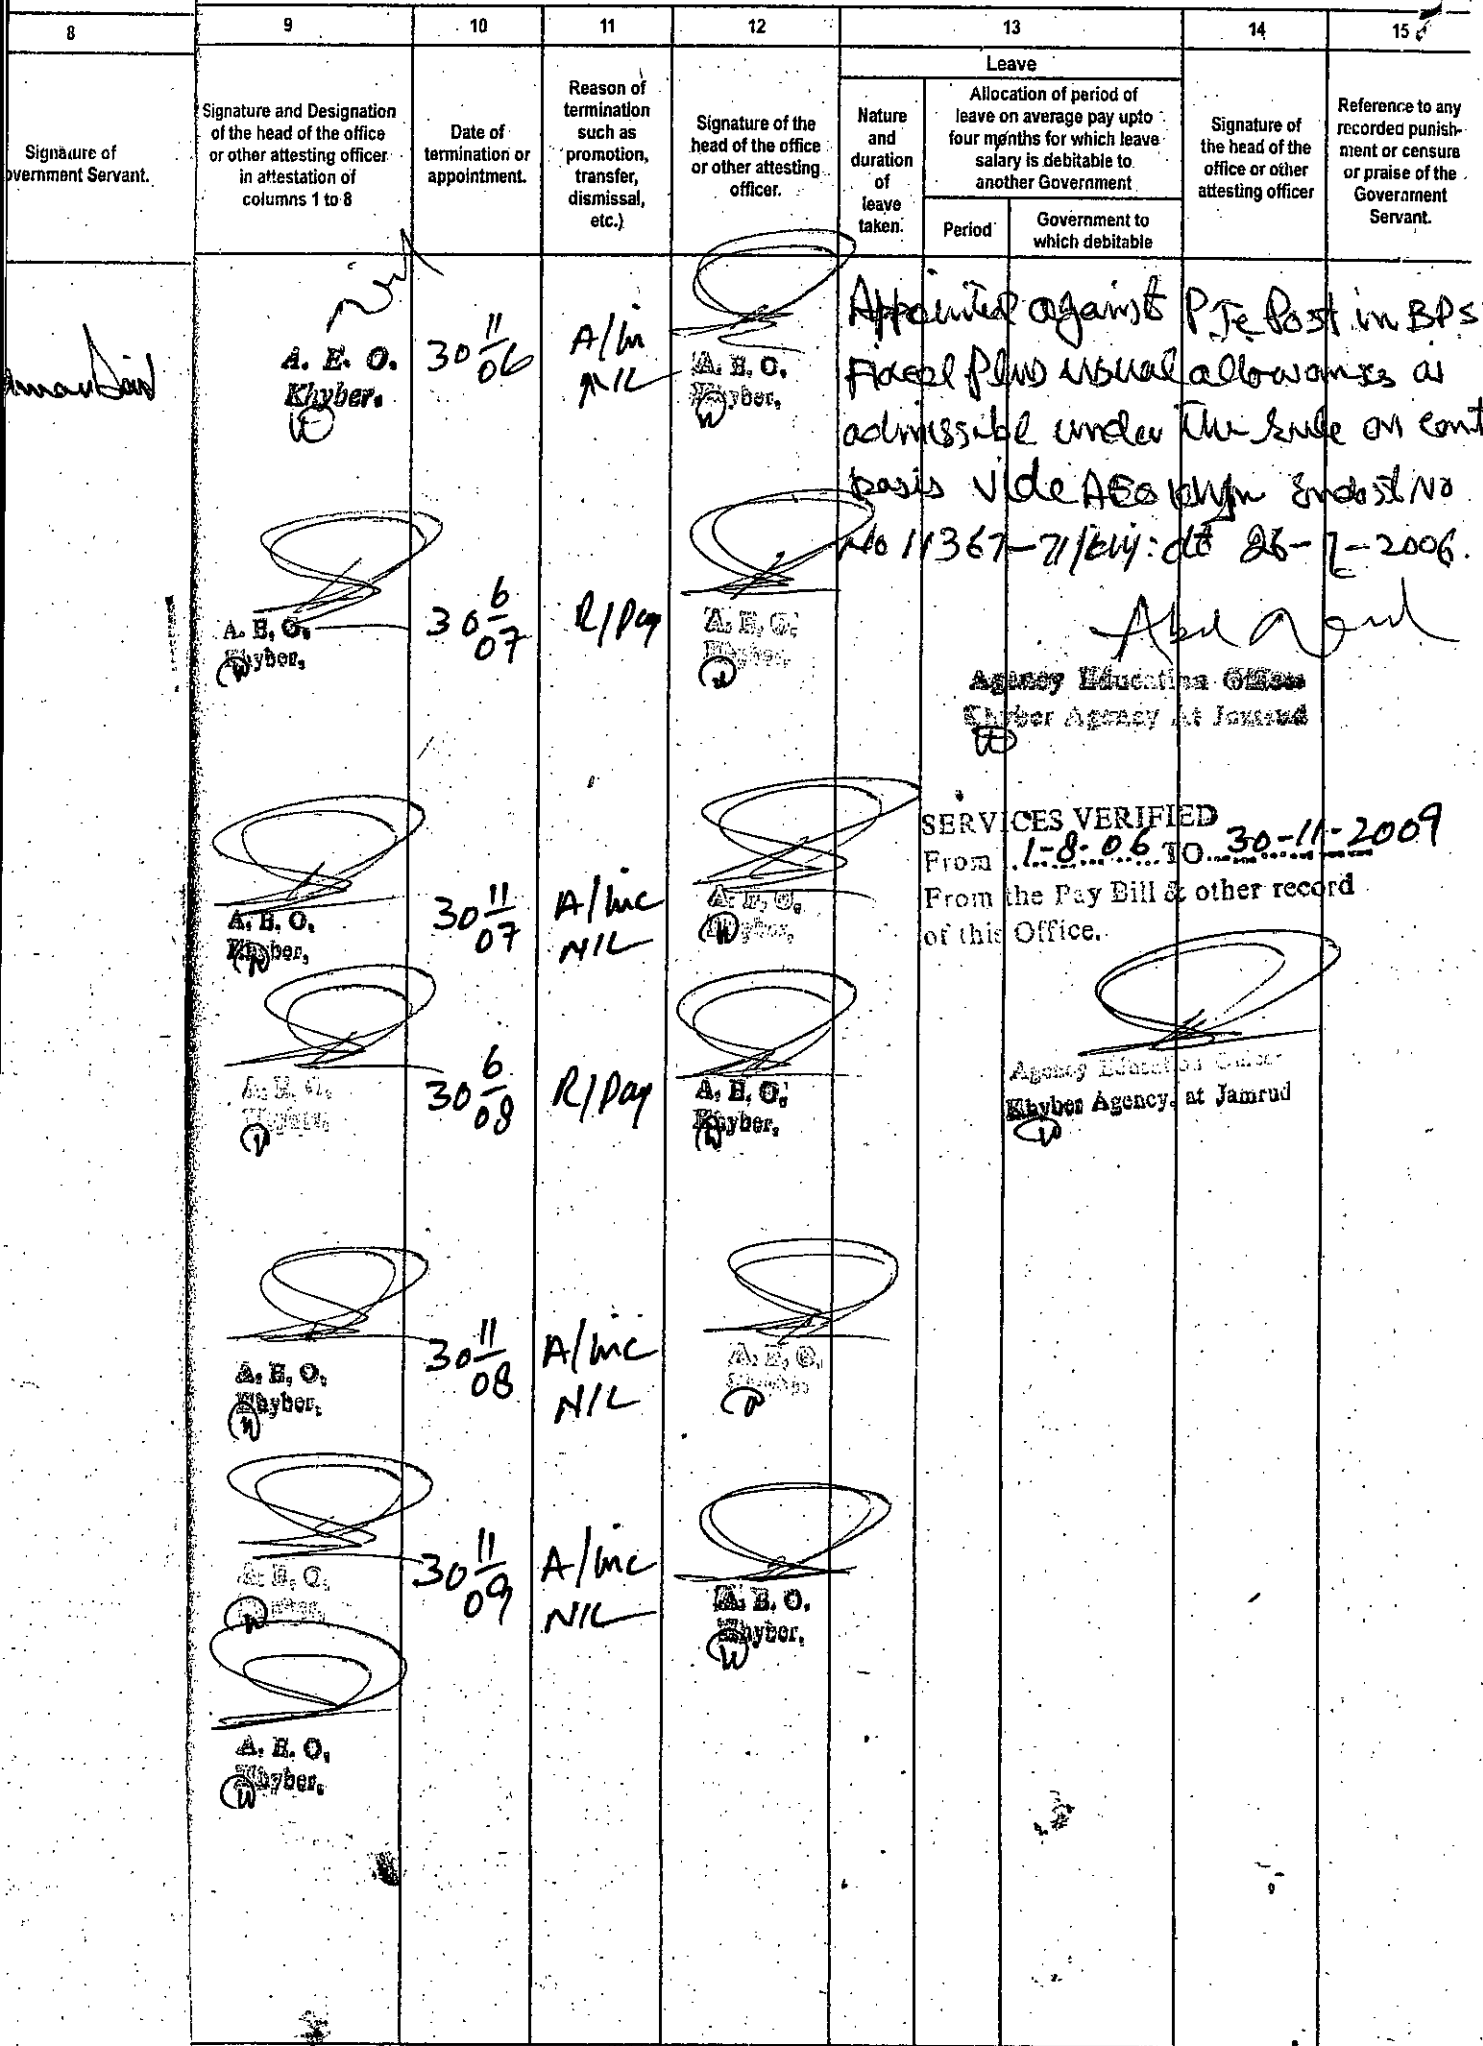 8
9
10
11
12
13
14
15
Signature of
overnment Servant.
Signature and Designation
of the head of the office
or other attesting officer
in attestation of
columns 1 to 8
Date of
termination or
appointment.
Reason of
termination
such as
promotion,
transfer,
dismissal,
etc.)
Signature of the
head of the office
or other attesting
officer.
Leave
Nature
and
duration
of
leave
taken.
Allocation of period of
leave on average pay upto
four months for which leave
salary is debitable to
another Government
Period
Government to
which debitable
Signature of
the head of the
office or other
attesting officer
Reference to any
recorded punish-
ment or censure
or praise of the
Government
Servant.
A. E. O.
Khyber.
30 11/06
A/In
NIL
A. E. O.
Khyber.
Appointed against PTC Post in BPS
Fixed Plus usual allowances as
admissible under the rule on cont
basis vide AEO Endost No
No 11367-71/ dt 26-7-2006.
Agency Education Officer
Khyber Agency At Jamrud
A. E. O.
Khyber.
30 6/07
R/Pay
A. E. O.
Khyber.
SERVICES VERIFIED
From 1-8-06 TO 30-11-2009
From the Pay Bill & other record
of this Office.
Agency Education Officer
Khyber Agency, at Jamrud
A. E. O.
Khyber.
30 11/07
A/inc
NIL
A. E. O.
Khyber.
A. E. O.
Khyber.
30 6/08
R/Pay
A. E. O.
Khyber.
A. E. O.
Khyber.
30 11/08
A/inc
NIL
A. E. O.
Khyber.
A. E. O.
Khyber.
30 11/09
A/inc
NIL
A. E. O.
Khyber.
A. E. O.
Khyber.